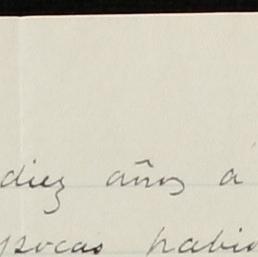 diez años á
épocas había